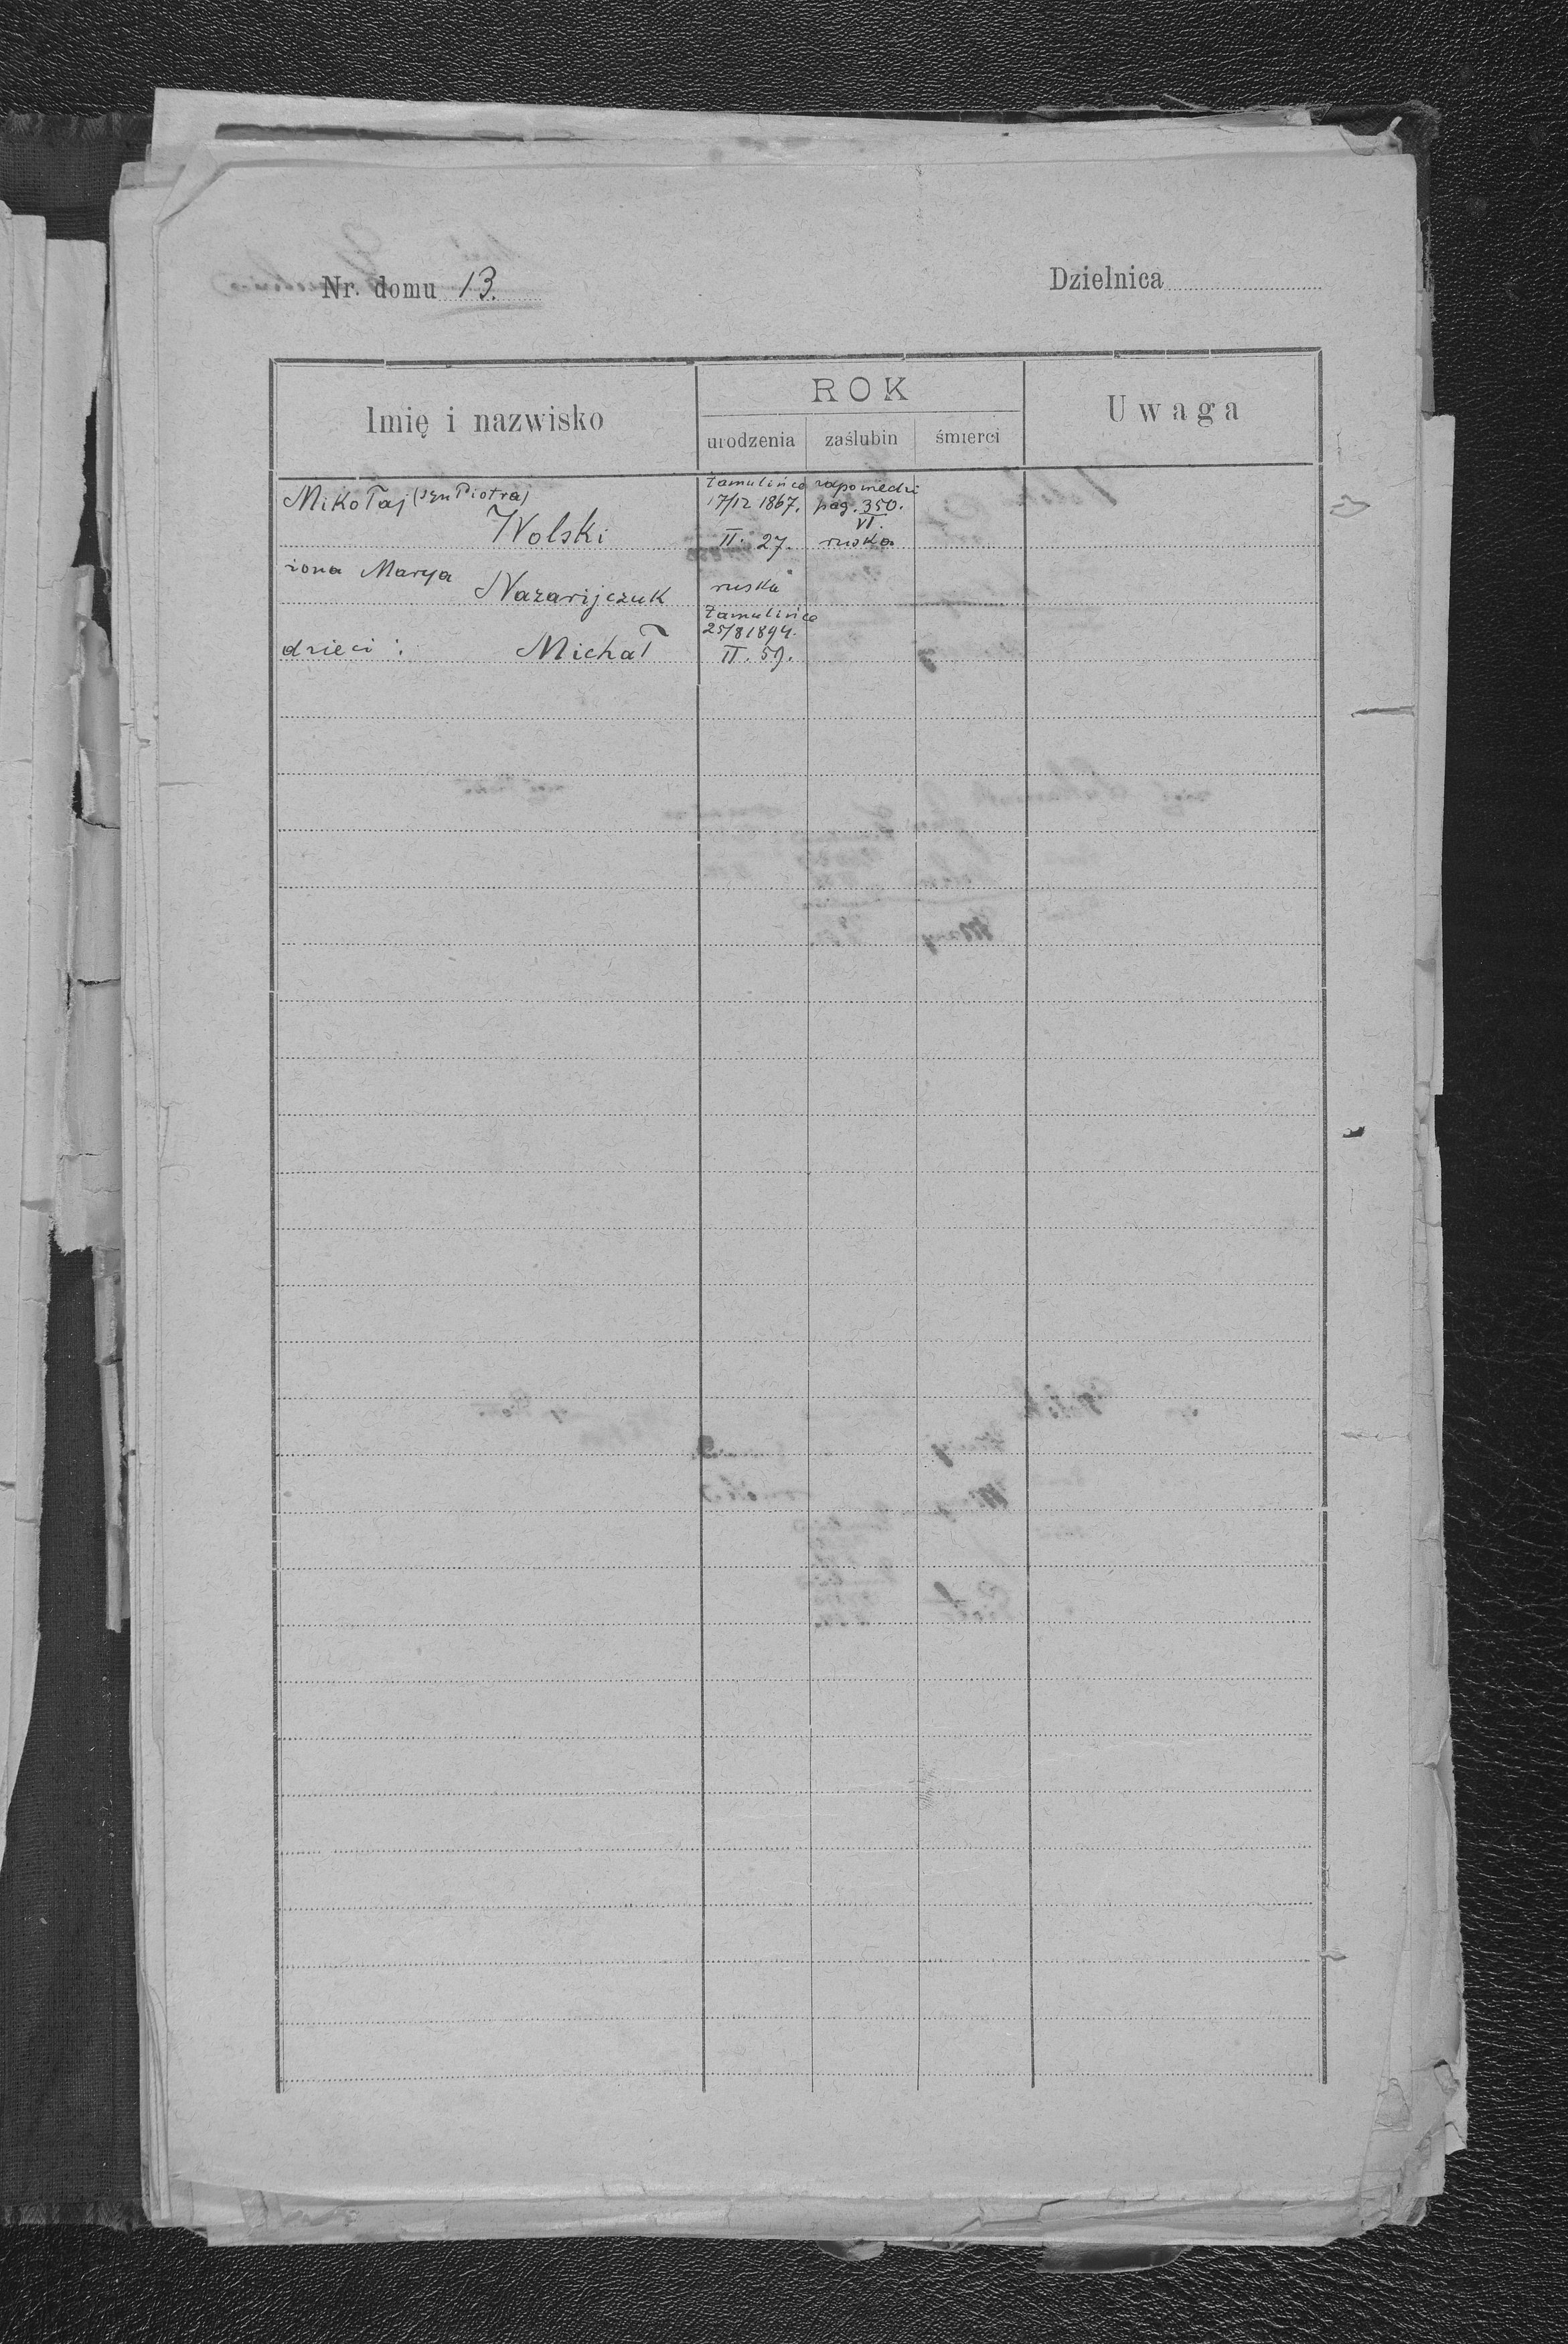 Nr. domu 13.
Dzielnica
Imię i nazwisko
ROK
urodzenia
zaślubin
śmierci
Uwaga
Mikołaj (syn Piotra)
Wolski
Zamulińce
17/12 1867.
II. 27.
zapowiedzi
pag. 350.
VI.
ruska
żona Marya
Nazarijczuk
ruska
dzieci:
Michał
Zamulińce
25/8 1894.
II. 59.